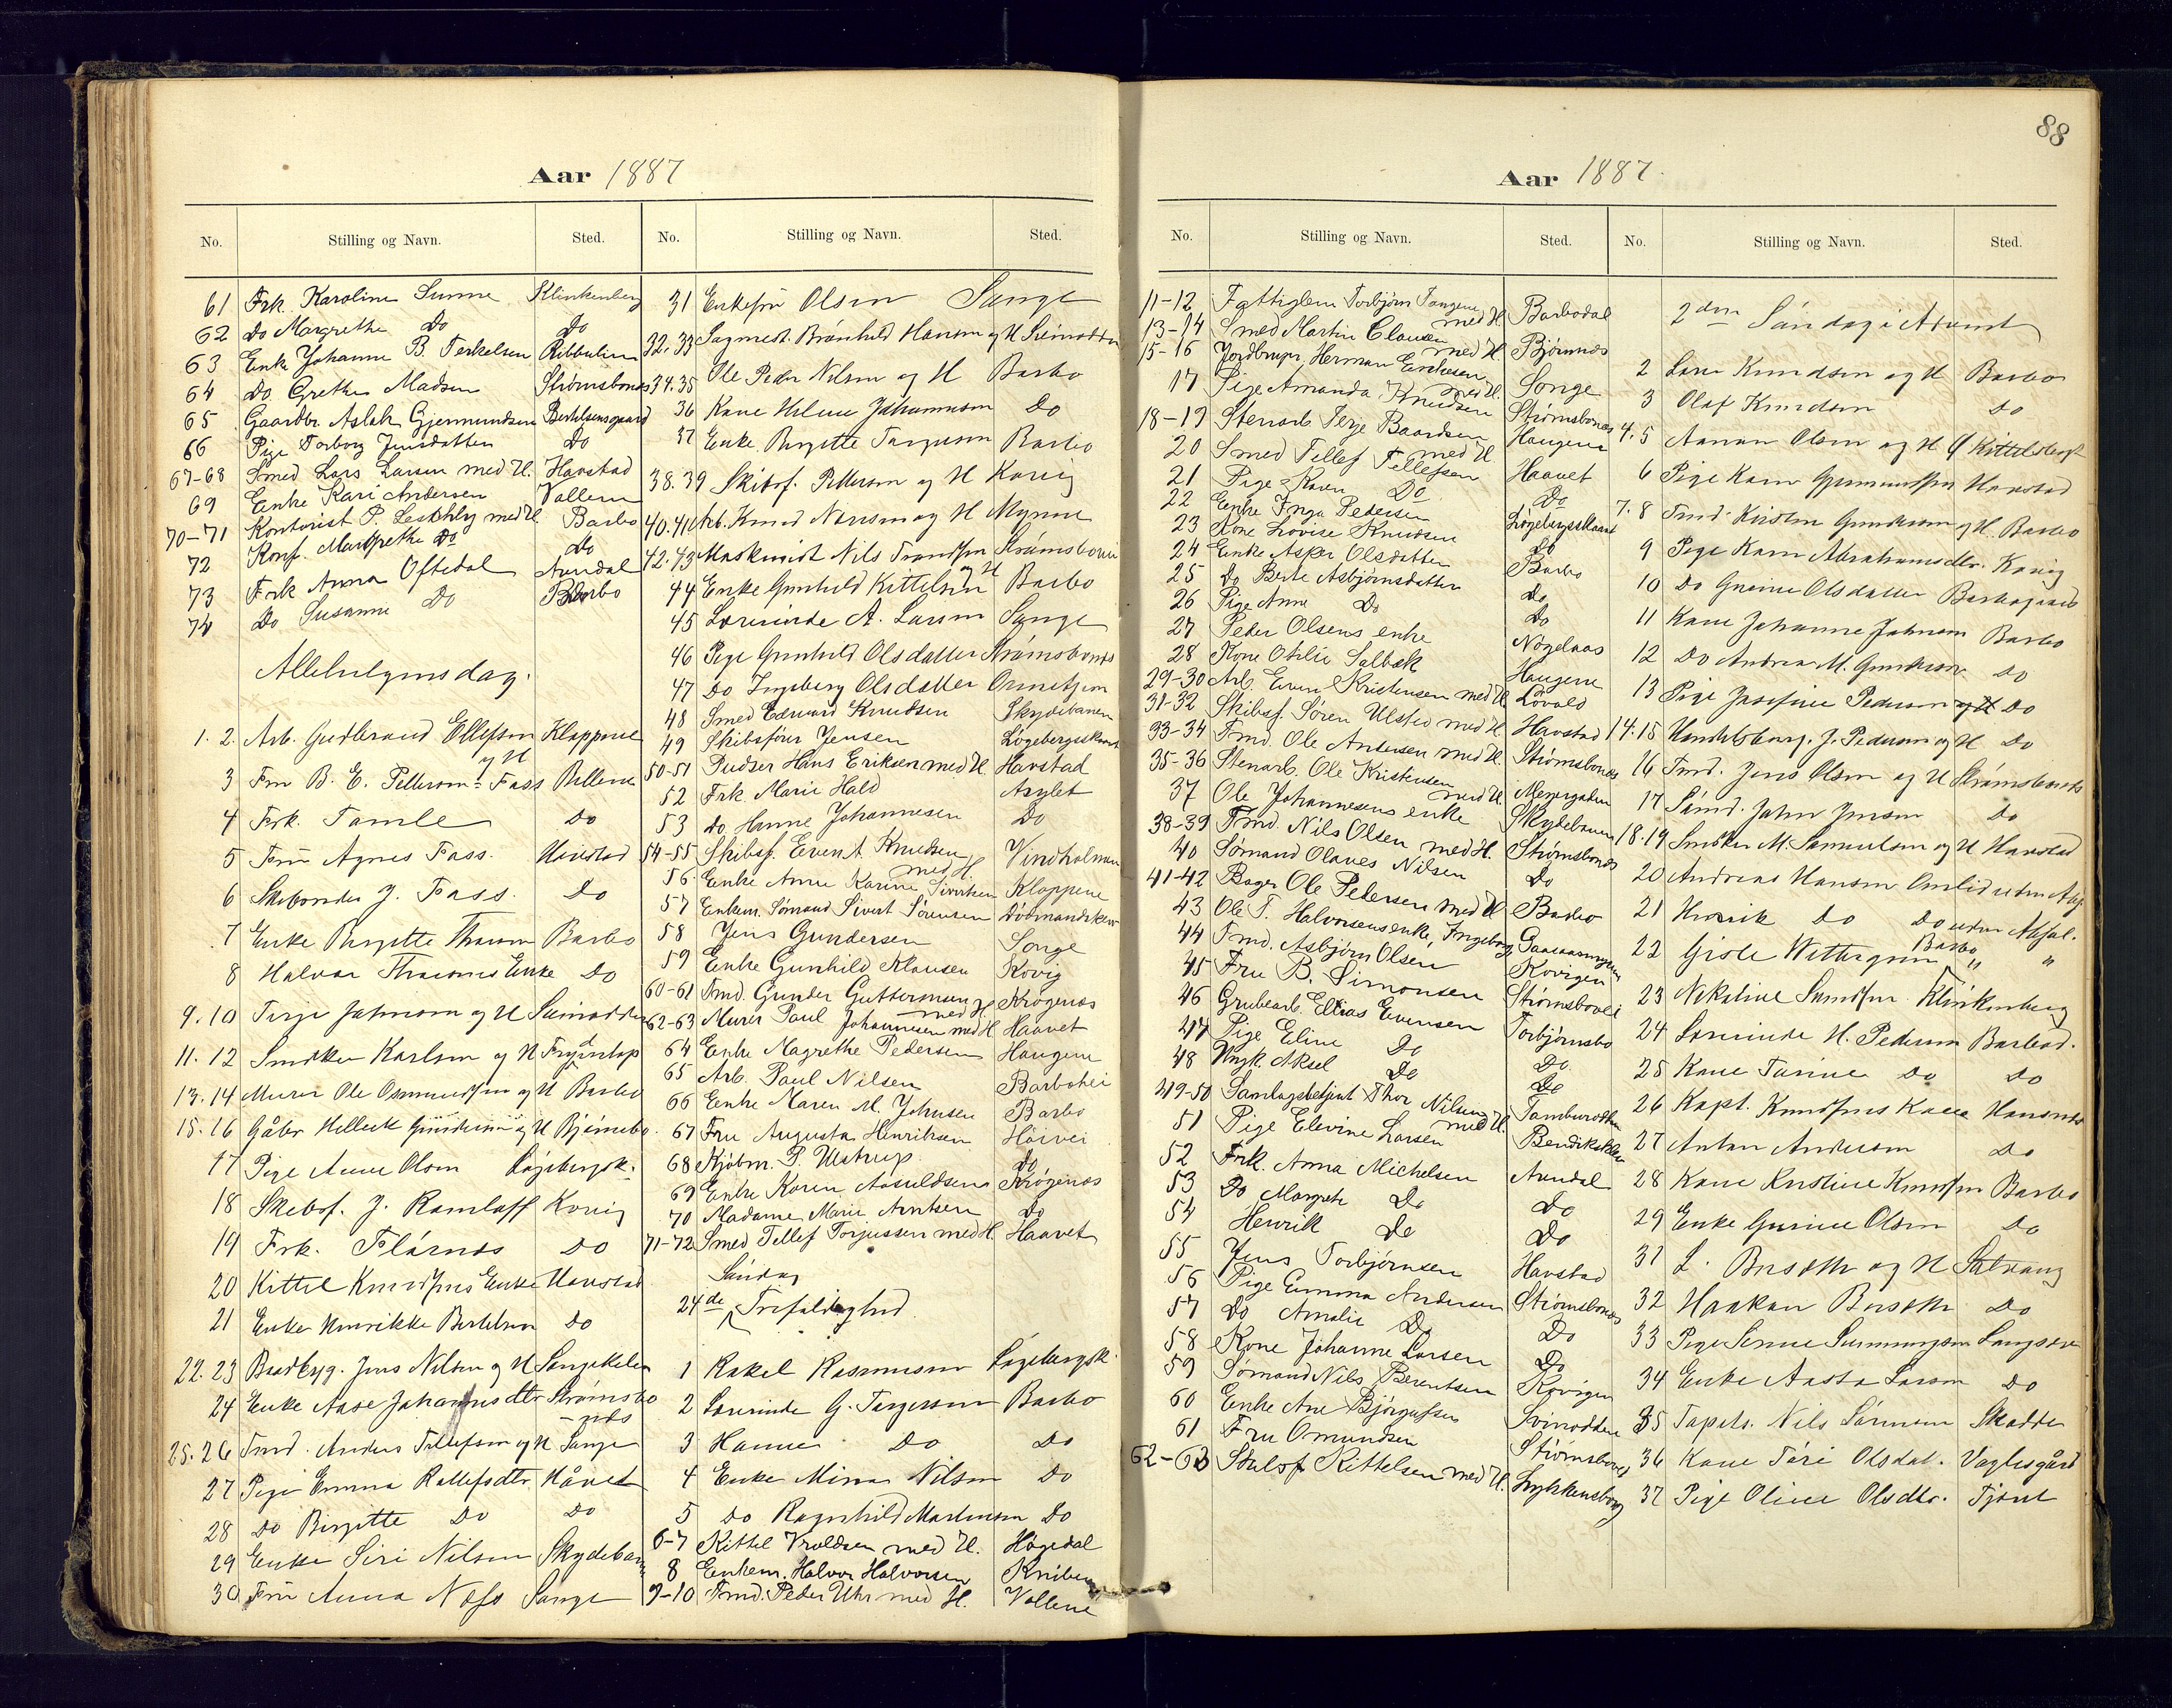 88
Aar 1887
No. Stilling og Navn. Sted. No. Stilling og Navn. Sted.
61 Frk. Karoline Sunne Klinkenberg
62 Do Margrethe Do Do
63 Enke Johanne B. Terkelsen Ribbulien
64 Do. Grethe Madsen Strømsbonæs
65 Gaardbr. Aslak Gjermundsen Bertelsensgaard
66 Pige Torborg Jensdatter Do
67-68 Smed Lars Larsen med H. Havstad
69 Enke Kari Andersen Vollene
70-71 Kontorist P. med H. Barbo
72 Konf. Margrethe Do Do
73 Frk Anna Oftedal Arendal
74 Do Susanne Do Barbo
Allehelgensdag.
1. 2. Arb. Gudbrand Ellefsen og H Kloppene
3 Fru B. E. Pettersen-Fass Vollene
4 Frk. Tamle Do
5 Fru Agnes Fass. Havstad
6 Skibsreder J. Fass. Do
7 Enke Birgitte Thomsen Barbo
8 Halvor Enke Do
9. 10 Terje Johnsen og H Svinodden
11. 12 Snedker Karlsen og H
13. 14 Murer Ole Osmundsen og H Barbo
15. 16 Gåbr. Helleik Gundersen og H Bjørnebo.
17 Pige Anne Olsen Løgebergsk.
18 Skibsf. J. Ramlaff Kovig
19 Frk. Flørnæs Do
20 Kittel Knudsens Enke Havstad
21 Enke Henrikke Bertelsen Do
22. 23 Baadbyg. Jens Nilsen og H Songekilen
24 Enke Aase Johannesdtr Strømsbo-næs
25. 26 Tmd. Anders Tellefsen og H Songe
27 Pige Emma Rollefsdtr Håvet
28 Do Birgitte Do Do
29 Enke Siri Nilsen Skydebanen
30 Fru Anna Næss Songe
31 Enkefru Olsen Songe
32. 33 Sagmest. Brønhild Hansen og H Svinodden
34. 35 Ole Peder Nilsen og H Barbo
36 Kone Helene Johannesen Do
37 Enke Birgitte Torgersen Barbo
38. 39 Skibsf. Pettersen og H Kovig
40. 41 Arb. Knud og H Myrene
42. 43 Maskinist Nils Trondsen og H Strømsbovei
44 Enke Gunhild Kittelsen Barbo
45 Lærerinde A. Larsen Songe
46 Pige Gunhild Olsdatter Strømsbonæs
47 Do Ingeborg Olsdatter
48 Smed Edvard Knudsen Skydebanen
49 Skibsfører Jensen Løgebergsskaret
50-51 Pudser Hans Eriksen med H. Havstad
52 Frk Marie Hald Asylet
53 Do. Hanne Johannesen Do
54-55 Skibsf. Even A. Knudsen med H. Vindholmen
56 Enke Anne Karine Sivertsen Kloppene
57 Enkem. Sømand Sivert Sørensen Dødmandskjær
58 Jens Gundersen Songe
59 Enke Gunhild Klausen Kovig
60-61 Tmd. Gunder Guttormsen med H. Krøgenæs
62-63 Murer Paul Johannesen med H. Haavet
64 Enke Magrethe Pedersen Haugene
65 Arb. Paul Nilsen Barbohei
66 Enke Maren M. Johnsen Barbo
67 Fru Augusta Henriksen Høivei
68 Kjøbm. P. Ulstrup. Do
69 Enke Karen Aasuldsen Krøgenæs
70 Madame Marie Arntsen Do
71-72 Smed Tellef Torjussen med H. Haavet
24de Søndag Trefoldighed
1 Rakel Rasmussen Løgebergsk.
2 Lærerinde G. Torgersen Barbo
3 Hanne Do Do
4 Enke Mina Nilsen Do
5 Do Ragnhild Martinsen Do
6-7 Kittel Vroldsen med H. Høgedal
8 Enkem. Halvor Halvorsen Kniben
9-10 Tmd. Peder Uhr med H. Vollene
Aar 1887.
No. Stilling og Navn. Sted. No. Stilling og Navn. Sted.
11-12 Fattiglem Torbjørn Tangene med H Barbodal
13-14 Smed Martin Clausen med H. Bjørnnæs
15-16 Jordbruger Herman Eriksen med H. Songe
17 Pige Amanda Knudsen Strømsbonæs
18-19 Stenarb. Terje Baardsen med H. Haugene
20 Smed Tellef Tellefsen Haavet
21 Pige Karen Do Do
22 Enke Inga Pedersen Løgebergsskaret
23 Kone Lovise Knudsen Do
24 Enke Asker Olsdatter Barbo
25 Do Berte Asbjørnsdatter Do
26 Pige Anne Do Do
27 Peder Olsens enke Nøgelaas
28 Kone Otilie Solbæk Haugene
29-30 Arb. Even Kristensen med H Lovold
31-32 Skibsf. Søren Ulsted med H Havstad
33-34 Tmd. Ole Andersen med H. Strømsbonæs
35-36 Stenarb. Ole Kristensen med H. Meyergaden
37 Ole Johannesens enke Skydebanen
38-39 Tmd. Nils Olsen med H. Strømsbonæs
40 Sømand Olaves Nilsen Do
41-42 Bager Ole Pedersen med H Barbo
43 Ole T. Halvorsens enke, Ingeborg Gaasaasmyren
44 Tmd. Asbjørn Olsen Kovigen
45 Fru B. Simonsen Strømsbovei
46 Grubearb. Ellias Evensen Torbjørnsbo
47 Pige Eline Do Do
48 Ungk. Aksel Do Do
49-50 Samlagsbetjent Thor Nilsen med H. Tamburodden
51 Pige Elevine Larsen Bendiksklev
52 Frk. Anna Michelsen Arendal
53 Do Margrete Do Do
54 Henrik Do Do
55 Jens Torbjørnsen Havstad
56 Pige Emma Andersen Strømsbonæs
57 Do Amalie Do Do
58 Kone Johanne Larsen Do
59 Sømand Nils Berentsen Kovigen
60 Enke Ane Bjørgulfsen Svinodden
61 Fru Omundsen Strømsbonæs
62-63 Skibsf. Kittelsen med H. Lykkensborg
2den Søndag i Advent
2 Lars Knudsen og H Barbo
3 Olaf Knudsen Do
4. 5 Aanon Olsen og H
6 Pige Karen Gjermundsen Havstad
7. 8 Tmd. Kristen Gundersen og H. Barbo
9 Pige Karen Abrahamsdtr. Kovig
10 Do Gurine Olsdatter Barbogaard
11 Kone Johanne Johnsen Barbo
12 Do Andrea M. Gundersen Do
13 Pige Josefine Pedersen Do
14. 15 Handelsborg. J. Pedersen og H Do
16 Tmd. Jens Olsen og H Strømsbonæs
17 Sømd. John Jensen Do
18. 19 Snedker M. Samuelsen og H Havstad
20 Andreas Hansen Omlid
21 Henrik Do Do
22 Gisle Barbo " "
23 Nikoline Klinkenberg
24 Lærerinde H. Pedersen Barbod.
25 Kone Tarine Do Do
26 Kapt. Knudsens Kone Havsnæs
27 Anton Andersen Do
28 Kone Kristine Knudsen Barbo
29 Enke Gurine Olsen Do
31 L. og H
32 Haakan Do
33 Pige
34 Enke Aasta Larson Do
35 Tapets. Nils Sørensen Skadde
36 Kone Tøri Olsdat. Vaglesgård
37 Pige Oline Olsdtr. Tjønt